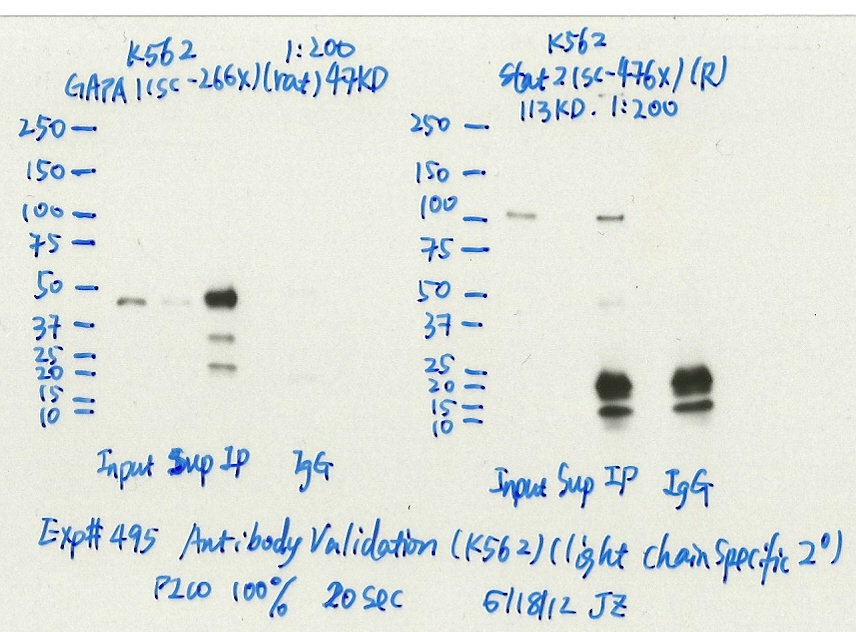 K562 1:200
GATA1(sc-266x)(rat)47KD
250
150
100
75
50
37
25
20
15
10
Input Sup IP IgG
K562
Stat2(sc-476x)(R)
113KD. 1:200
250
150
100
75
50
37
25
20
15
10
Input Sup IP IgG
Exp# 495 Antibody Validation (K562)(light chain specific 2°)
P200 100% 20sec 6/18/12 JZ